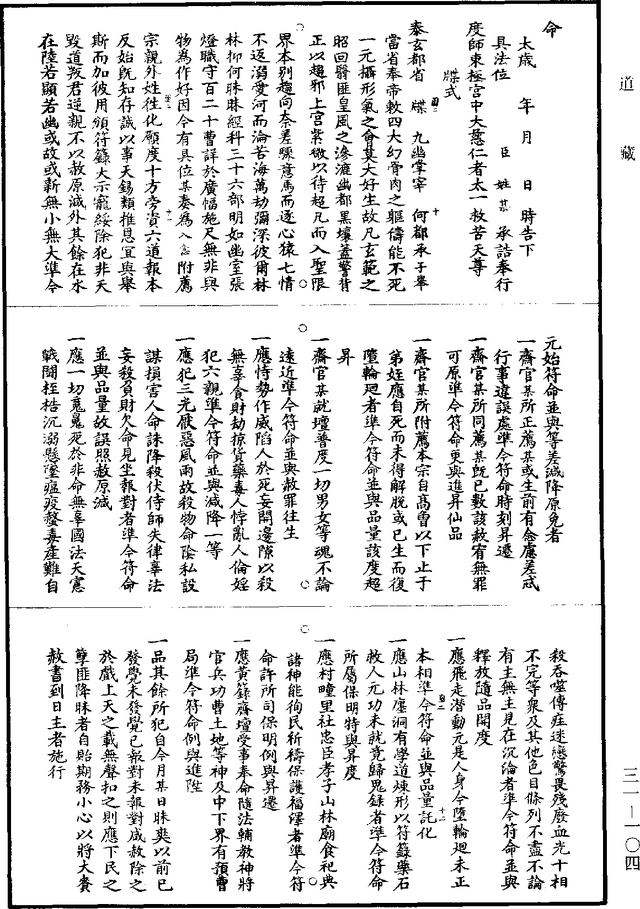 道藏
命
太歲　年　月　日　時告下
具法位　臣　姓　某　承誥奉行
度師東極宮中大慈仁者太一救苦天尊
牒式
泰玄都省　牒　九幽掌宰　何鄷承子皋
當省奉帝敕四大幻骨肉之軀儔能不死
一元攝形氣之會莫大好生故凡玄範之
昭回翳匪皇風之滲漉幽都黑壤蓋警背
正以趨邪上宮紫微以待超凡而入聖限
界本別趨向奈差驟意馬而逐心猿七情
不返溺愛河而淪苦海萬劫彌深彼爾林
林抑何昧昧經科三十六部明如幽室張
燈職守百二十曹詳於廣幅施尺無非與
物為作好因今有具位某奏為入意附薦
宗親外姓徃化願度十方旁資六道報本
反始既知存誠以事天錫類推恩冝與舉
斯而加彼用頒符籙大示寵綏除犯非天
毀道叛君逆親不以赦原減外其餘在水
在陸若顯若幽或故或新無小無大準今
元始符命並與等差減降原免者
一齋官某所正薦某或生前有念慮差忒
行事違誤處準今符命時刻昇遷
一齋官某所同薦某既已數該赦宥無罪
可原準今符命更與進昇仙品
一齋官某所附薦本宗自高曾以下止于
弟姪應自死而未得解脫或已生而復
墮輪迴者準今符命並與品量該度超
昇
一齋官某就壇普度一切男女等魂不論
遠近準今符命並與赦罪往生
一應恃勢作威陷人於死妄開邊隙以殺
無辜貪財劫掠貨藥毒人悖亂人倫婬
犯六親準今符命並與減降一等
一應犯三光厭惡風雨故殺物命陰私設
謀損害人命誅降殺伏侍師失律辜法
妄殺負財欠命見坐報對者準今符命
並與品量故誤照赦原減
一應一切鬼魂死於非命無辜國法天憲
戰鬭桎梏沉溺懸墜瘟疫螫毒產難自
殺吞噬傳疰迷繞驚畏殘廢血光十相
不完等衆及其他色目條列不盡不論
有主無主見在沉淪者準今符命並與
釋放隨品開度
一應飛走潛動元是人身今墮輪迴未正
本相準今符命並與品量託化
一應山林巖洞有學道煉形以符籙藥石
救人元功未就竟歸鬼錄者準今符命
所屬保明特與昇度
一應村疃里社忠臣孝子山林廟食祀典
諸神能徇民祈禱保護福澤者準今符
命許所司保明例與昇遷
一應黃籙齋壇受事奉命隨法輔教神將
官兵功曹土地等神及中下界有預曹
局準今符命例與進陞
一品其餘所犯自今月某日昧爽以前已
發覺未發覺已報對未報對咸赦除之
於戲上天之載無聲扣之則應下民之
孽匪降昧者自貽期務小心以將大賚
赦書到日主者施行
三一—一〇四